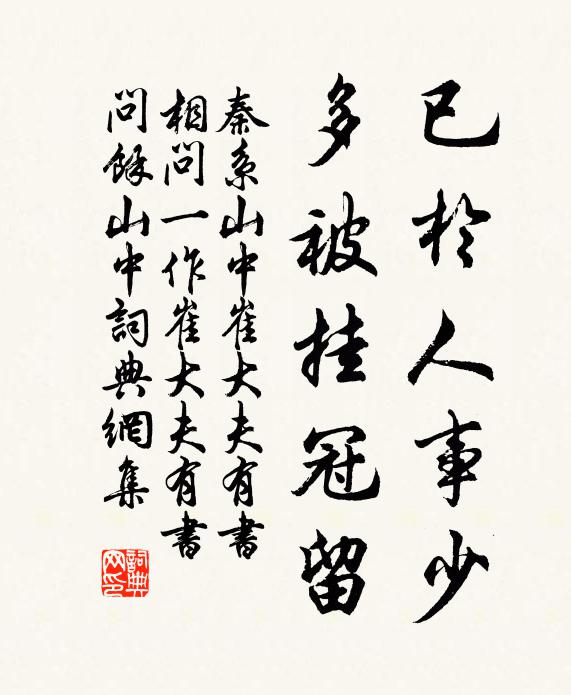 已於人事少
多被挂冠留
秦系山中崔大夫有書
相問一作崔大夫有書
問餘山中詞典網集
詞典
网印